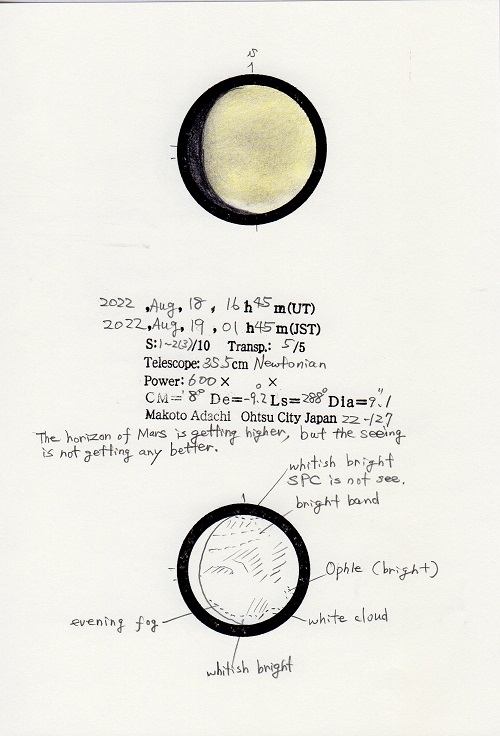 S
2022 ,Aug, 18 , 16 h 45 m(UT)
2022,Aug, 19 , 01 h45 m(JST)
S:1~2(3)/10 Transp.: 5/5
Telescope: 35.5cm Newtonian
Power: 600 × 。 ×
CM= 8° De=-9.2 Ls=288° Dia=9"1
Makoto Adachi Ohtsu City Japan 22-127
The horizon of Mars is getting higher, but the seeing
is not getting any better.
whitish bright
SPC is not see.
bright band
Ophle (bright)
evening fog
white cloud
whitish bright